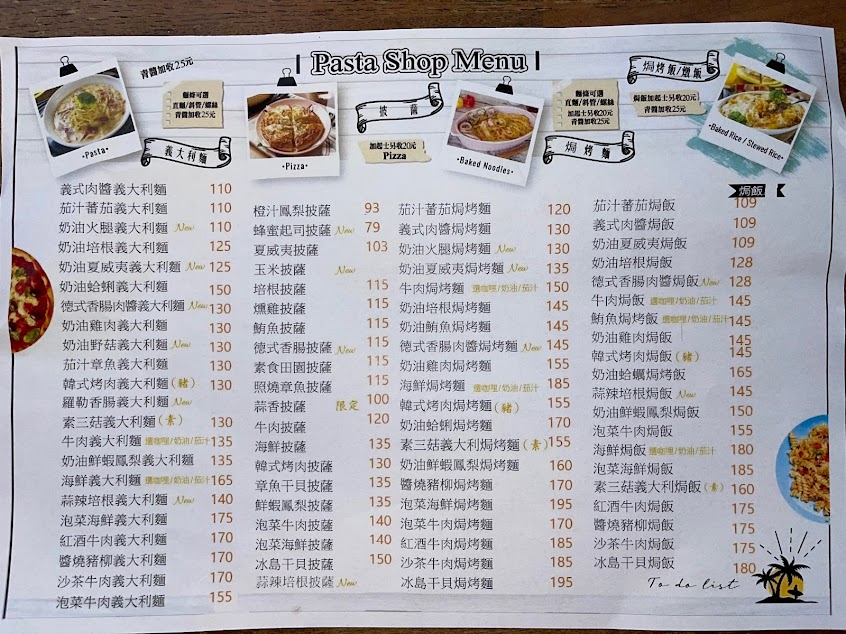 Pasta Shop Menu
青醬加收25元
Pasta
麵條可選
直麵/斜管/螺絲
青醬加收25元
義大利麵
義式肉醬義大利麵 110
茄汁蕃茄義大利麵 110
奶油火腿義大利麵 New 110
奶油培根義大利麵 125
奶油夏威夷義大利麵 New 125
奶油蛤蜊義大利麵 150
德式香腸肉醬義大利麵 New 130
奶油雞肉義大利麵 130
奶油野菇義大利麵 New 130
茄汁章魚義大利麵 130
韓式烤肉義大利麵(豬) 130
羅勒香腸義大利麵 New
素三菇義大利麵(素) 130
牛肉義大利麵 選咖哩/奶油/茄汁 135
奶油鮮蝦鳳梨義大利麵 135
海鮮義大利麵 選咖哩/奶油/茄汁 165
蒜辣培根義大利麵 New 140
泡菜海鮮義大利麵 175
紅酒牛肉義大利麵 170
醬燒豬柳義大利麵 170
沙茶牛肉義大利麵 170
泡菜牛肉義大利麵 155
Pizza
披薩
加起士另收20元
Pizza
橙汁鳳梨披薩 93
蜂蜜起司披薩 New 79
夏威夷披薩 103
玉米披薩 New
培根披薩 115
燻雞披薩 115
鮪魚披薩 115
德式香腸披薩 New 115
素食田園披薩 115
照燒章魚披薩 115
蒜香披薩 限定 100
牛肉披薩 120
海鮮披薩 135
韓式烤肉披薩 130
章魚干貝披薩 135
鮮蝦鳳梨披薩 135
泡菜牛肉披薩 140
泡菜海鮮披薩 140
冰島干貝披薩 150
蒜辣培根披薩 New
Baked Noodles
麵條可選
直麵/斜管/螺絲
加起士另收20元
青醬加收25元
焗烤麵
茄汁蕃茄焗烤麵 120
義式肉醬焗烤麵 130
奶油火腿焗烤麵 New 130
奶油夏威夷焗烤麵 New 135
牛肉焗烤麵 選咖哩/奶油/茄汁 150
奶油培根焗烤麵 145
奶油鮪魚焗烤麵 145
德式香腸肉醬焗烤麵 New 145
奶油雞肉焗烤麵 155
海鮮焗烤麵 選咖哩/奶油/茄汁 185
韓式烤肉焗烤麵(豬) 155
奶油蛤蜊焗烤麵 170
素三菇義大利焗烤麵(素) 155
奶油鮮蝦鳳梨焗烤麵 160
醬燒豬柳焗烤麵 170
泡菜海鮮焗烤麵 195
泡菜牛肉焗烤麵 170
紅酒牛肉焗烤麵 185
沙茶牛肉焗烤麵 185
冰島干貝焗烤麵 195
焗烤飯/燉飯
焗飯加起士另收20元
青醬加收25元
Baked Rice / Stewed Rice
焗飯
茄汁蕃茄焗飯 109
義式肉醬焗飯 109
奶油夏威夷焗飯 109
奶油培根焗飯 128
德式香腸肉醬焗飯 New 128
牛肉焗飯 選咖哩/奶油/茄汁 145
鮪魚焗烤飯 選咖哩/奶油/茄汁 145
奶油雞肉焗飯 145
韓式烤肉焗飯(豬) 145
奶油蛤蠣焗烤飯 165
蒜辣培根焗飯 New 145
奶油鮮蝦鳳梨焗飯 150
泡菜牛肉焗飯 155
海鮮焗飯 選咖哩/奶油/茄汁 180
泡菜海鮮焗飯 185
素三菇義大利焗飯(素) 160
紅酒牛肉焗飯 175
醬燒豬柳焗飯 175
沙茶牛肉焗飯 175
冰島干貝焗飯 180
To do list